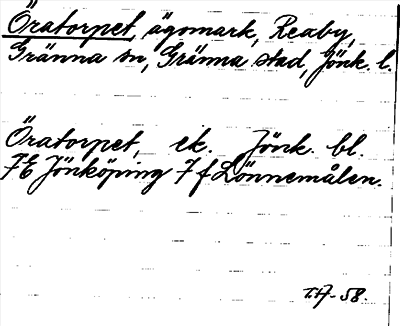 Öratorpet, ägomark, Reaby,
Gränna sn, Gränna stad, Jönk. l.
Öratorpet, ek. Jönk. bl.
7E Jönköping 7 f Lönnemålen.
T.A-58.